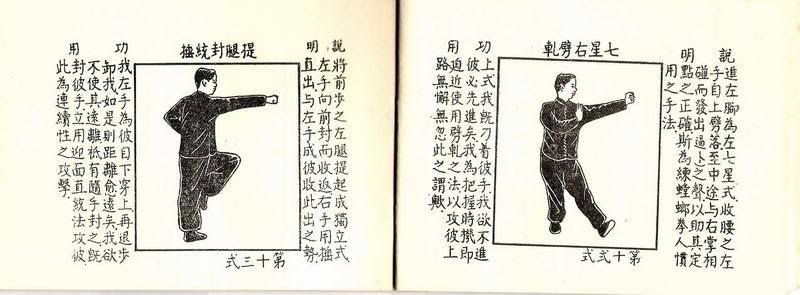 七星右劈軋
說明
進左腳為左七星式收腰之左
手自上劈落至中途与右掌相
碰而發出逼卜之聲以助其定
點之正確斯為練螳螂拳人慣
用之手法
功用
上式我旣刁着彼手我欲不進
彼必先進矣我為把握時機即
迫近使用劈軋之法以攻彼上
路無懈無忽此之謂歟
第十弍式
提腿封統捶
說明
將前步之左腿提起成獨立式
左手向前封而收返右手用捶
直出与左手成彼收此出之勢
功用
我左手為彼自下穿上再退步
卸我如是則距離愈遠矣我欲
不使其遠離祇有隨手封之旣
封彼手立用迎面直統法攻彼
此為連續性之攻擊
第十三式